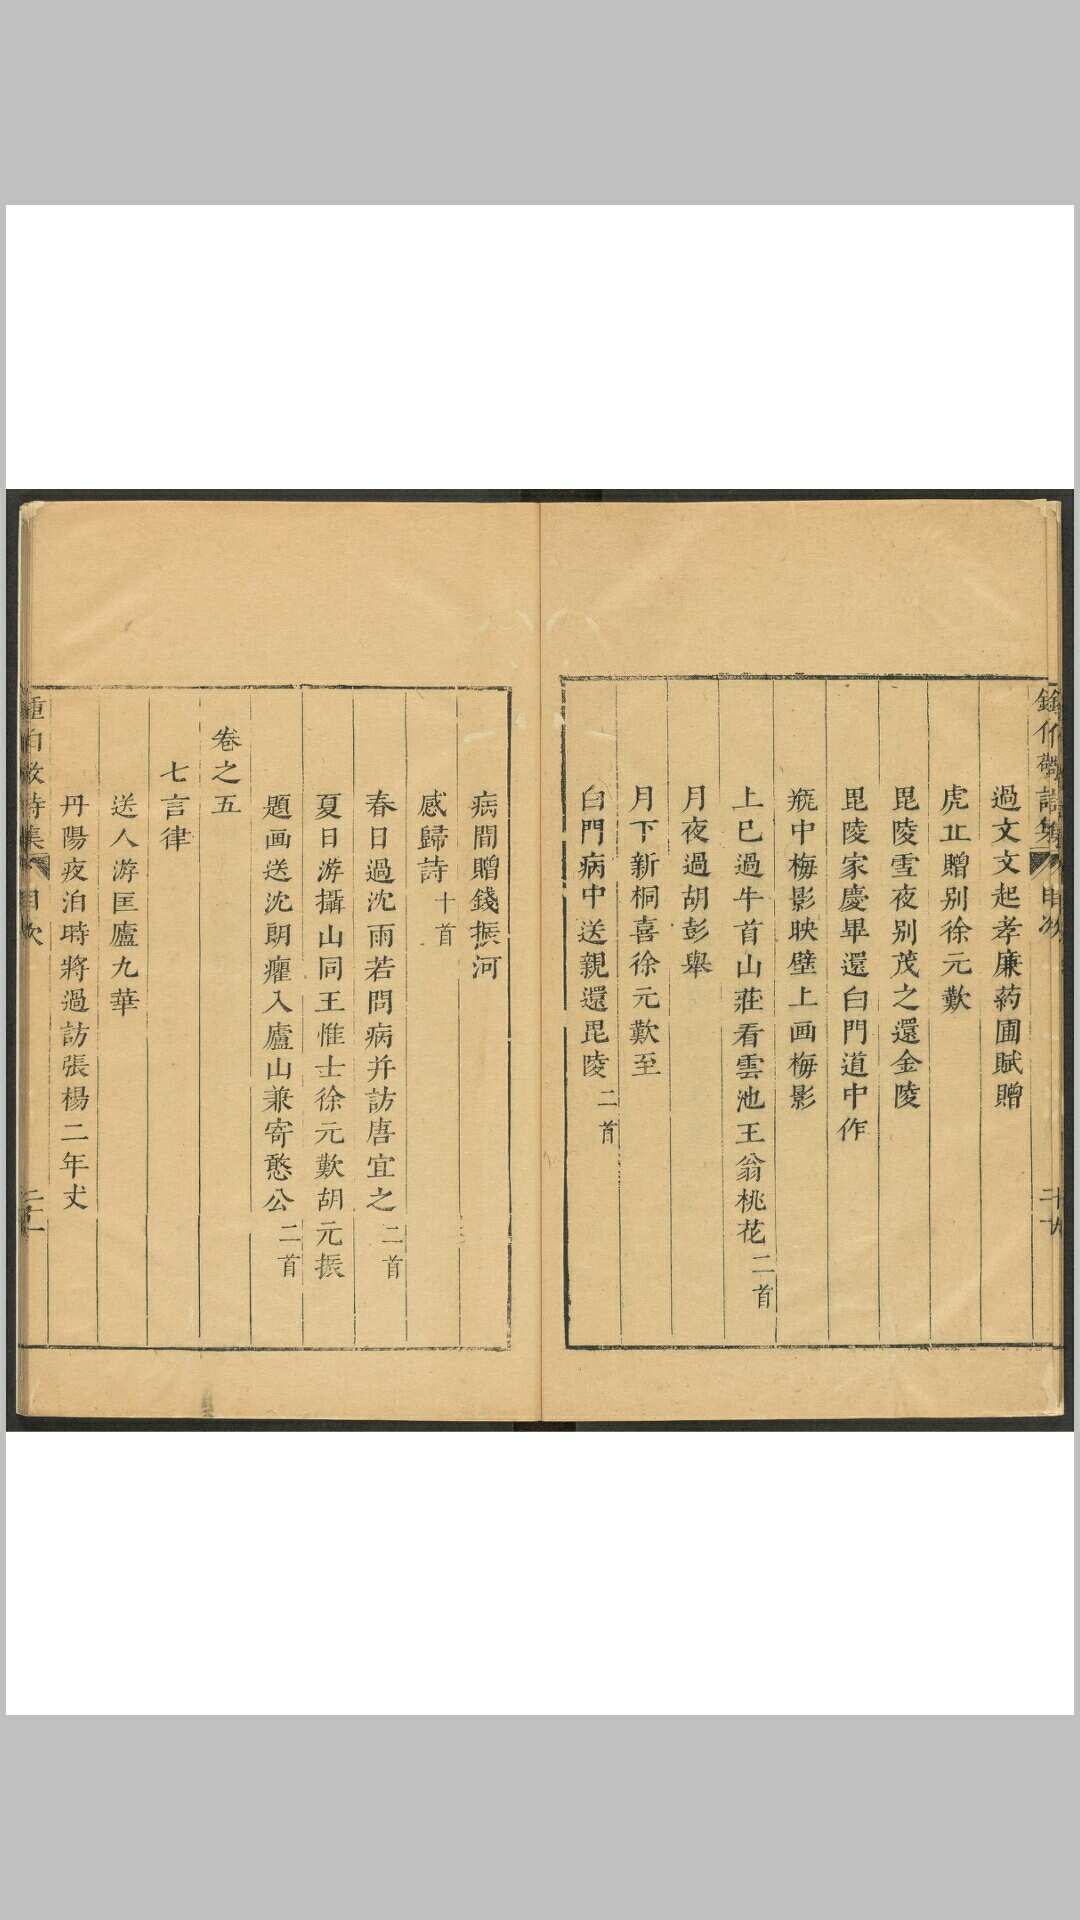 過文文起孝廉葯圃賦贈
虎丘贈别徐元歎
毘陵雪夜别茂之還金陵
毘陵家慶畢還白門道中作
瓶中梅影映壁上画梅影
上巳過牛首山莊看雲池王翁桃花二首
月夜過胡彭舉
月下新桐喜徐元歎至
白門病中送親還毘陵二首
病間贈錢振河
感歸詩十首
春日過沈雨若問病并訪唐宜之二首
夏日游攝山同王惟士徐元歎胡元振
題画送沈朗癯入廬山兼寄憨公二首
卷之五
七言律
送人游匡廬九華
丹陽夜泊時將過訪張楊二年丈